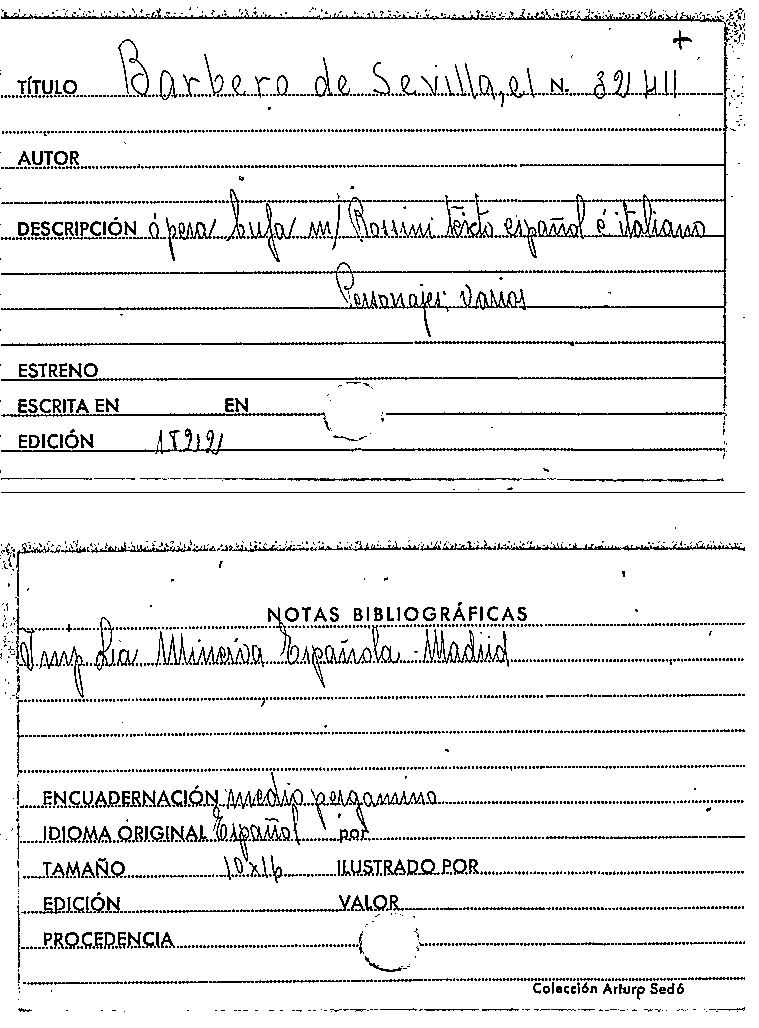 +
TÍTULO Barbero de Sevilla, el N. 32411
AUTOR
DESCRIPCIÓN ópera bufa m/ Rossini texto español é italiano
Personajes: varios
ESTRENO
ESCRITA EN EN
EDICIÓN 1822
NOTAS BIBLIOGRÁFICAS
Imp La Minerva Española - Madrid
ENCUADERNACIÓN medio pergamino
IDIOMA ORIGINAL Español por
TAMAÑO 10x16 ILUSTRADO POR
EDICIÓN VALOR
PROCEDENCIA
Colección Arturo Sedó